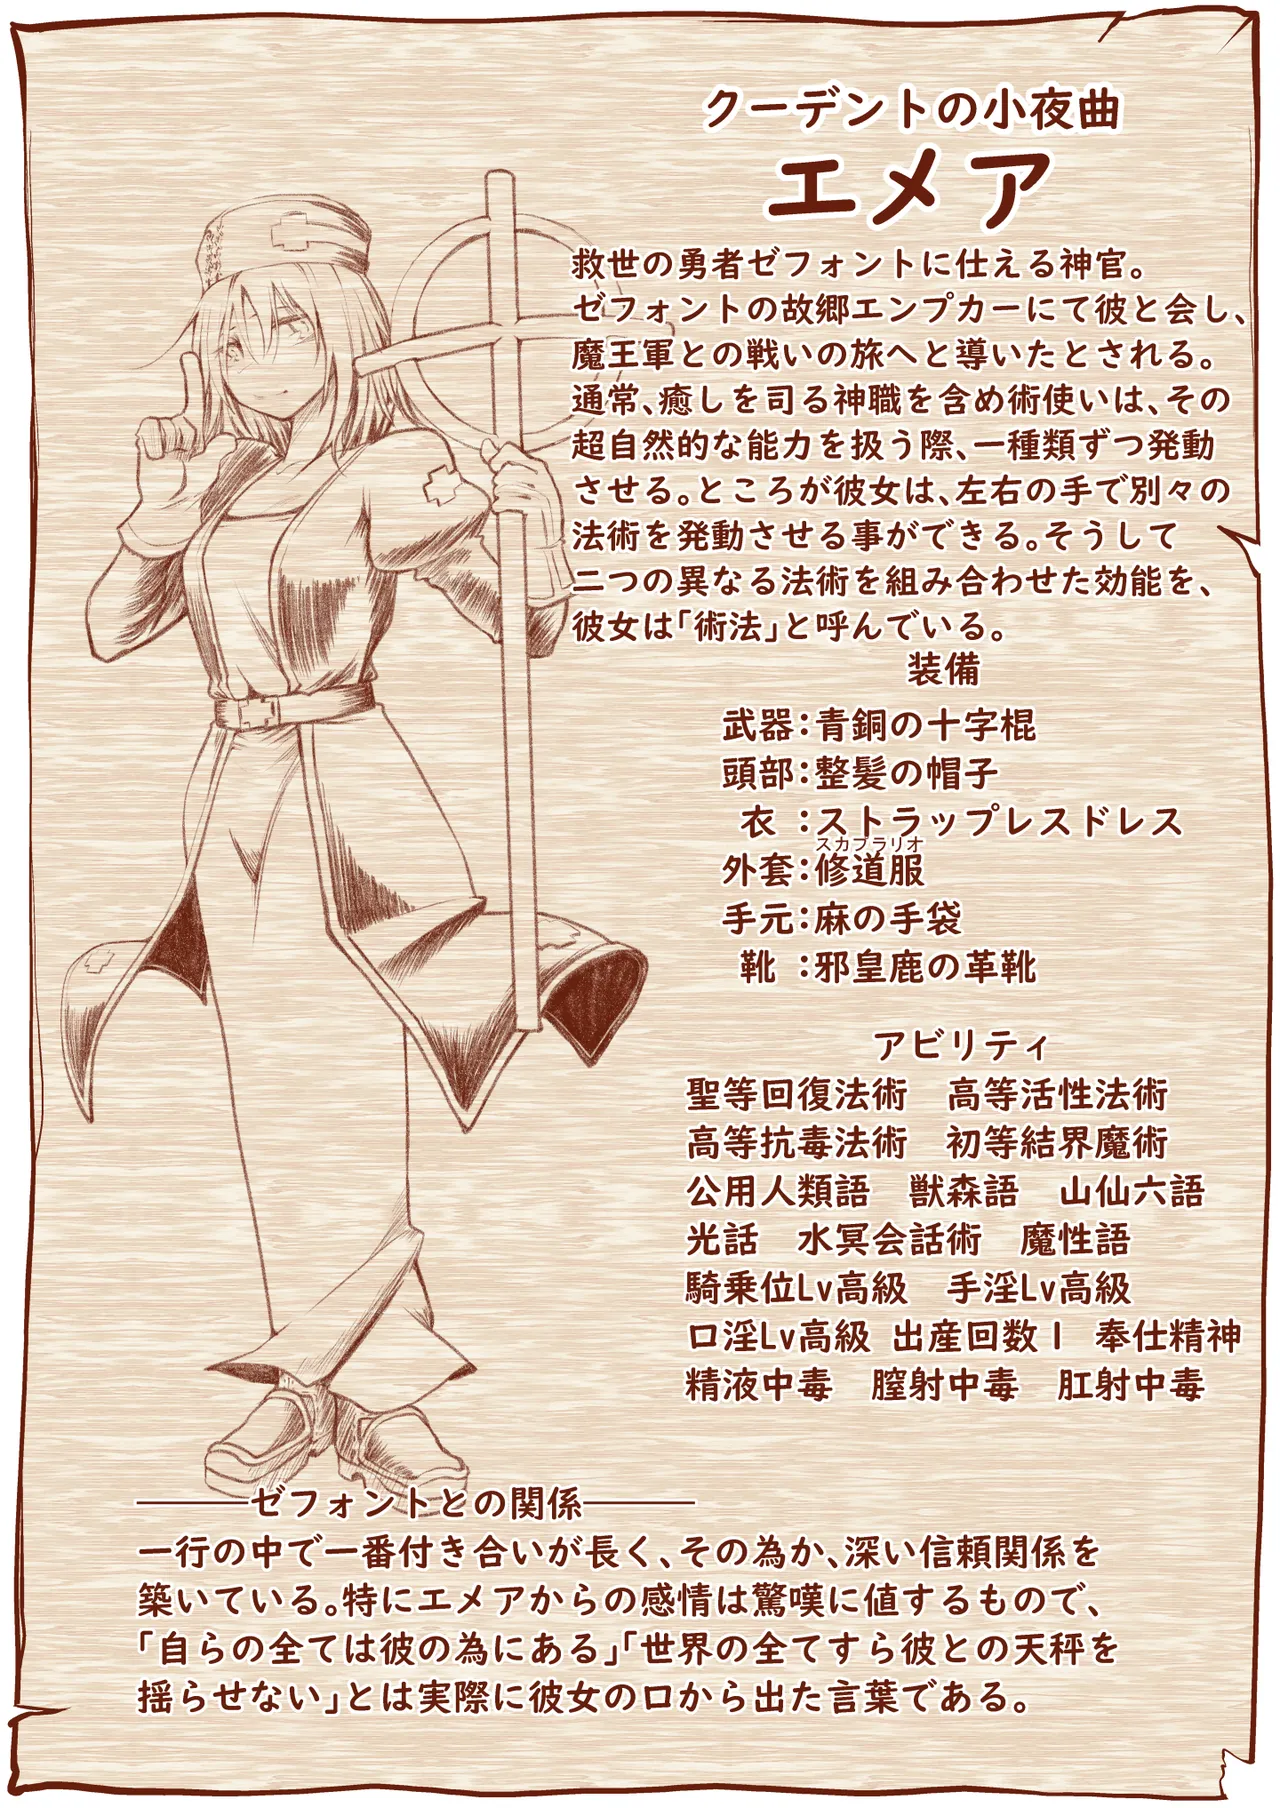 クーデントの小夜曲
エメア
救世の勇者ゼフォントに仕える神官。
ゼフォントの故郷エンプカーにて彼と会し、
魔王軍との戦いの旅へと導いたとされる。
通常、癒しを司る神職を含め術使いは、その
超自然的な能力を扱う際、一種類ずつ発動
させる。ところが彼女は、左右の手で別々の
法術を発動させる事ができる。そうして
二つの異なる法術を組み合わせた効能を、
彼女は「術法」と呼んでいる。
装備
武器：青銅の十字棍
頭部：整髪の帽子
衣：ストラップレスドレス
スカプラリオ
外套：修道服
手元：麻の手袋
靴：邪皇鹿の革靴
アビリティ
聖等回復法術　高等活性法術
高等抗毒法術　初等結界魔術
公用人類語　獣森語　山仙六語
光話　水冥会話術　魔性語
騎乗位Lv高級　手淫Lv高級
口淫Lv高級　出産回数１　奉仕精神
精液中毒　膣射中毒　肛射中毒
―――ゼフォントとの関係―――
一行の中で一番付き合いが長く、その為か、深い信頼関係を
築いている。特にエメアからの感情は驚嘆に値するもので、
「自らの全ては彼の為にある」「世界の全てすら彼との天秤を
揺らせない」とは実際に彼女の口から出た言葉である。